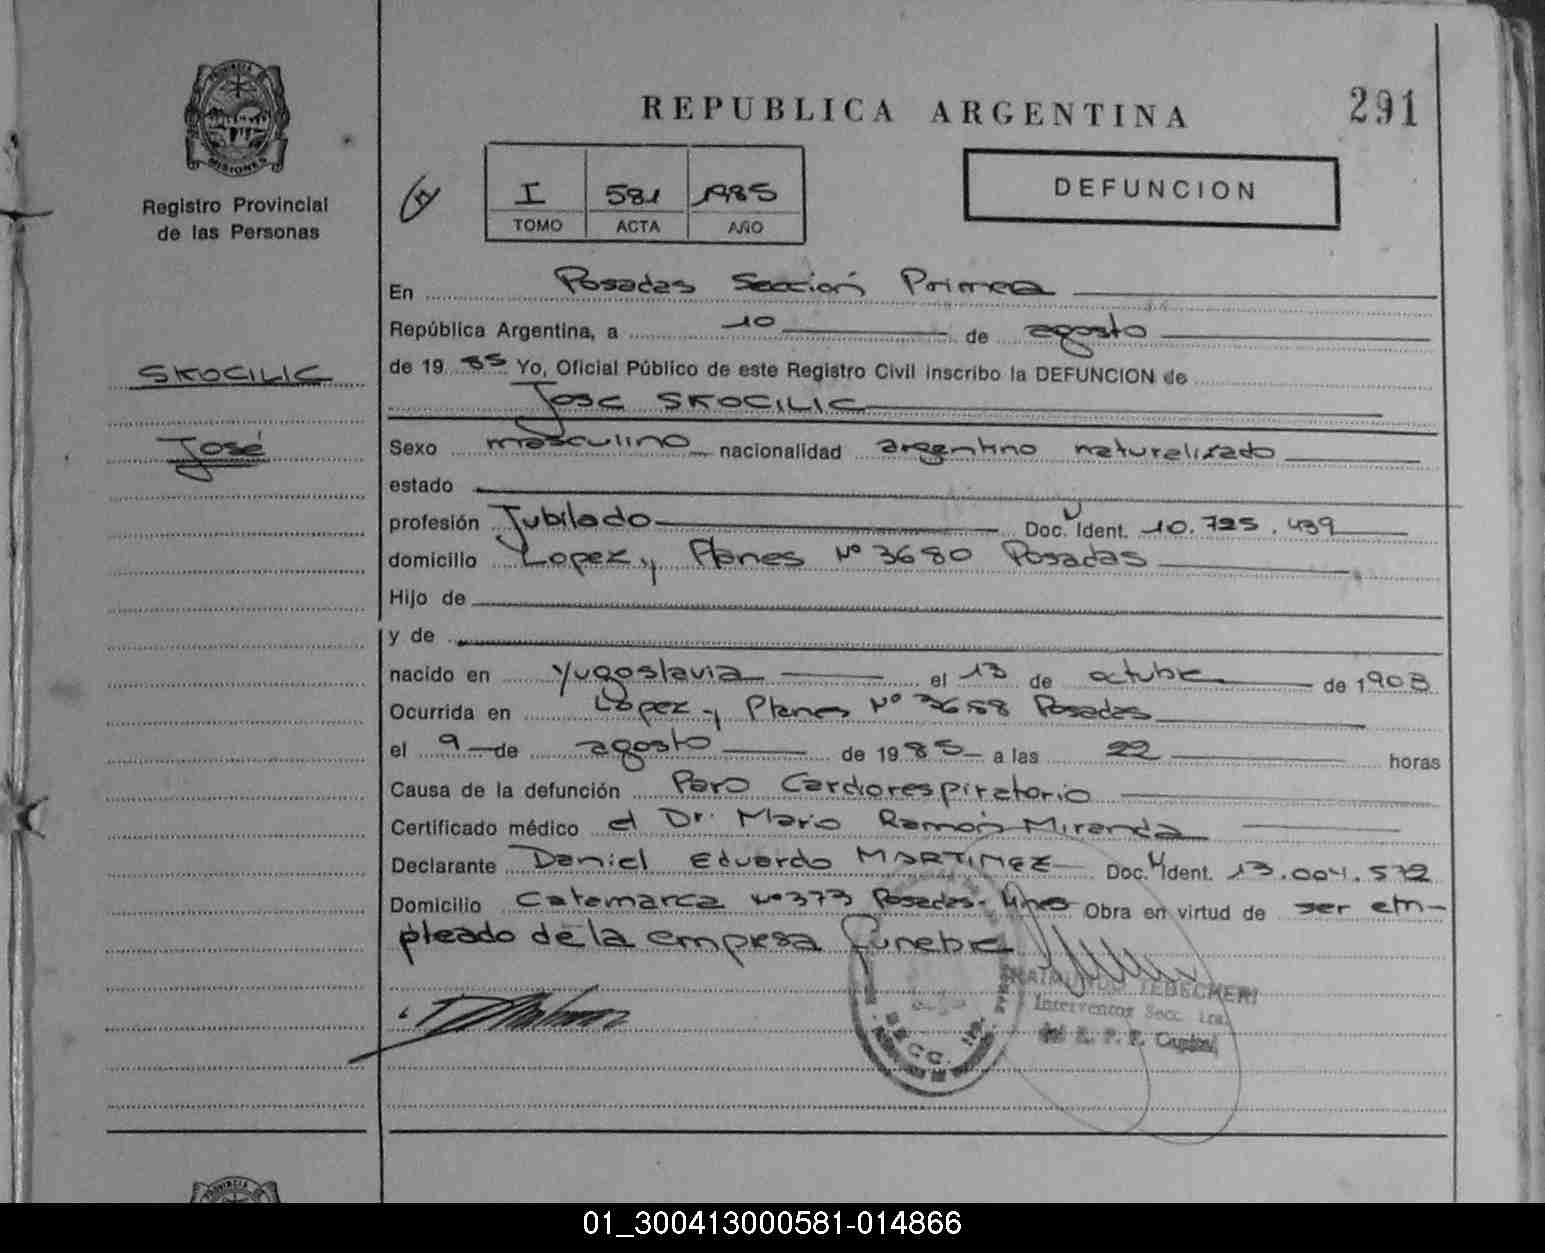 PROVINCIA DE
MISIONES
Registro Provincial
de las Personas
SKOCILIC
José
REPUBLICA ARGENTINA
291
I 581 1985
TOMO ACTA AÑO
DEFUNCION
En Posadas Sección Primera
República Argentina, a 10 de agosto
de 19 85 Yo, Oficial Público de este Registro Civil inscribo la DEFUNCION de
José SKOCILIC
Sexo masculino nacionalidad argentino naturalizado
estado
profesión Jubilado Doc. Ident. 10.725.439
domicilio Lopez y Planes Nº 3680 Posadas
Hijo de
y de
nacido en Yugoslavia el 13 de octubre de 1903
Ocurrida en López y Planes Nº 3658 Posadas
el 9 de agosto de 1985 a las 22 horas
Causa de la defunción Paro Cardiorespiratorio
Certificado médico el Dr. Mario Ramón Miranda
Declarante Daniel Eduardo MARTINEZ Doc. Ident. 13.004.572
Domicilio Catamarca Nº 373 Posadas - Mnes Obra en virtud de ser em-
pleado de la empresa Funebre
TEBECHERI
Interventor Secc. 1ra.
del R. P. P. Capital
SECC. 1ra.
PROVINCIA DE
01_300413000581-014866